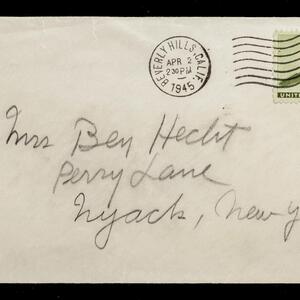 BEVERLY HILLS, CALIF.
APR 2
2 30 PM
1945
UNITED
Mrs Ben Hecht
Perry Lane
Nyack, New Y